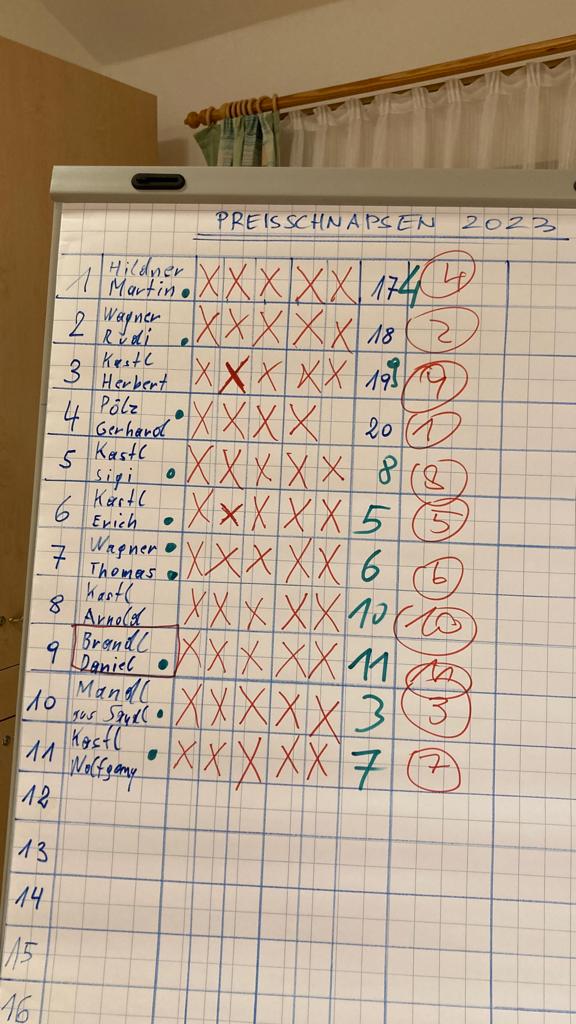 PREISSCHNAPSEN 2023
1 Hildner Martin X X X X X 17 4 4
2 Wagner Rudi X X X X X 18 2
3 Kastl Herbert X X X X X 19 9 9
4 Pölz Gerhard X X X X 20 1
5 Kastl Sigi X X X X X 8 8
6 Kastl Erich X X X X X 5 5
7 Wagner Thomas X X X X X 6 6
8 Kastl Arnold X X X X X 10 10
9 Brandl Daniel X X X X X 11 11
10 Mandl X X X X X 3 3
11 Kastl Wolfgang X X X X X 7 7
12
13
14
15
16